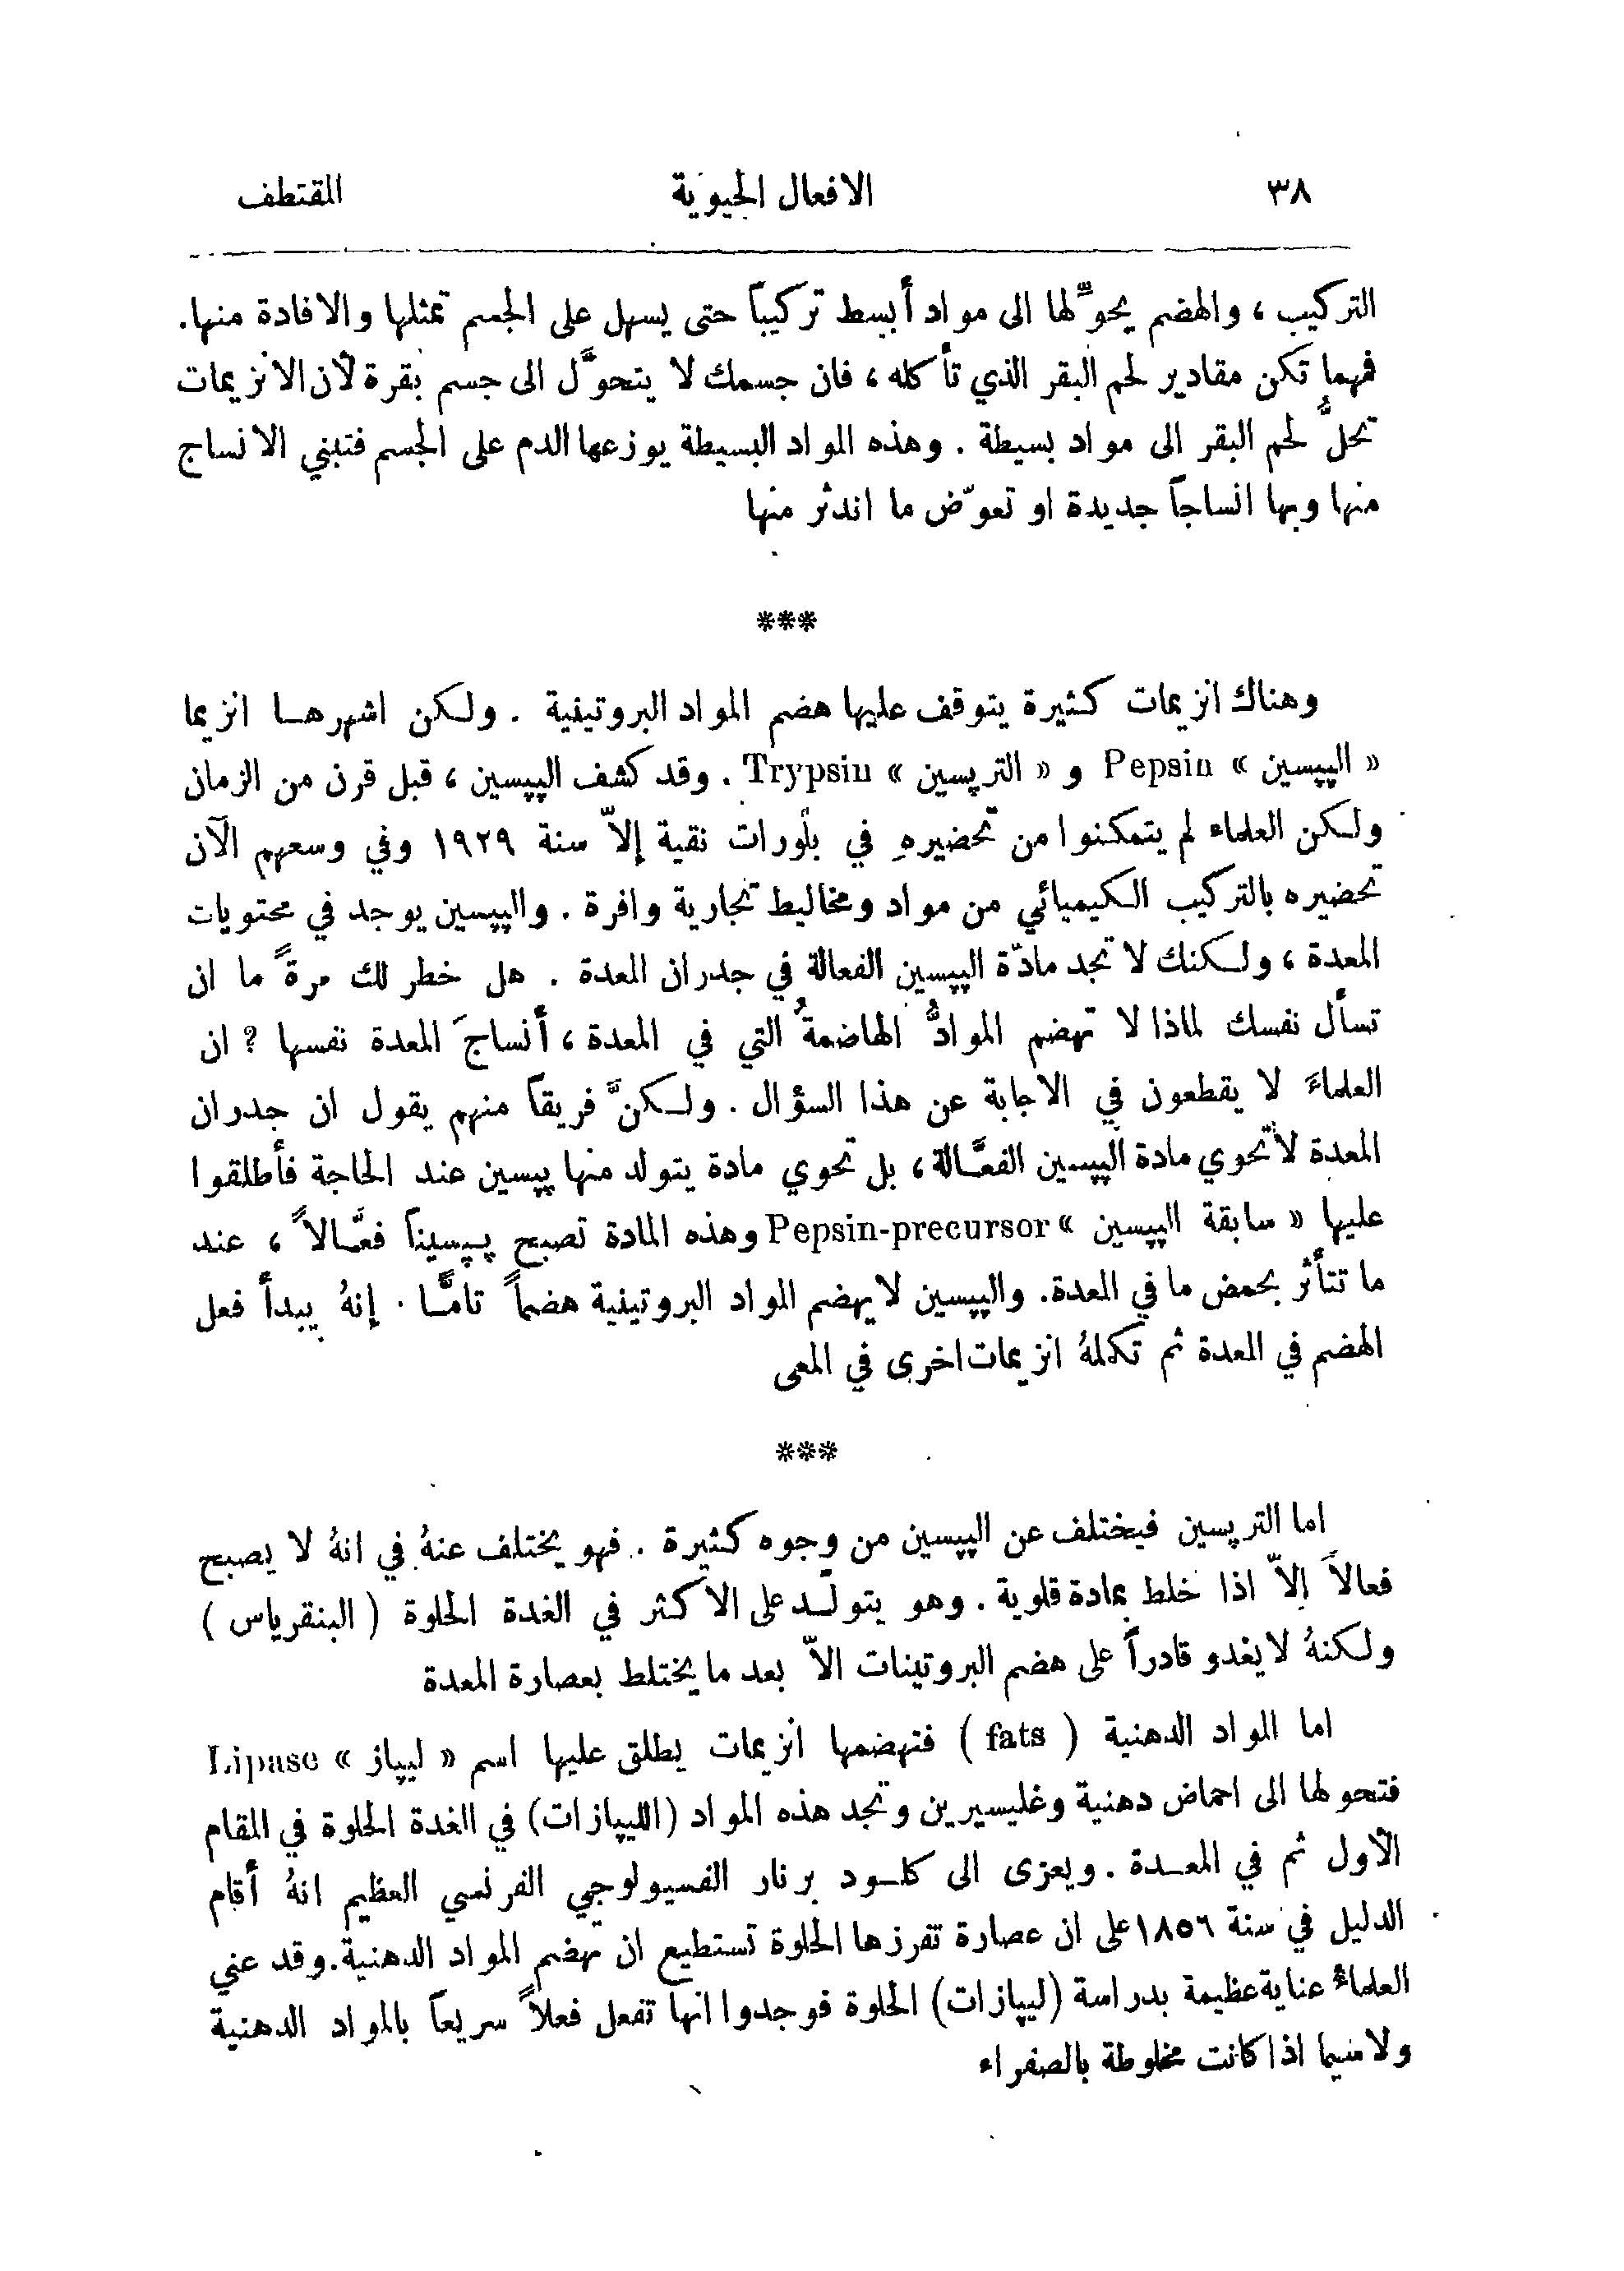 ٣٨ الافعال الحيوية المقتطف
التركيب ، والهضم يحوِّلها الى مواد أبسط تركيباً حتى يسهل على الجسم تمثلها والافادة منها .
فمهما تكن مقادير لحم البقر الذي تأكله ، فان جسمك لا يتحوَّل الى جسم بقرة لأن الانزيمات
تحلُّ لحم البقر الى مواد بسيطة . وهذه المواد البسيطة يوزعها الدم على الجسم فتبني الانساج
منها وبها انساجاً جديدة او تعوّض ما اندثر منها
***
وهناك انزيمات كثيرة يتوقف عليها هضم المواد البروتينية . ولكن اشهرها انزيما
« الپپسين » Pepsin و « التريپسين » Trypsin . وقد كشف الپپسين ، قبل قرن من الزمان
ولكن العلماء لم يتمكنوا من تحضيرهِ في بلّورات نقية إلاّ سنة ١٩٢٩ وفي وسعهم الآن
تحضيره بالتركيب الكيميائي من مواد ومخاليط تجارية وافرة . والپپسين يوجد في محتويات
المعدة ، ولكنك لا تجد مادّة الپپسين الفعالة في جدران المعدة . هل خطر لك مرةً ما ان
تسأل نفسك لماذا لا تهضم الموادُّ الهاضمةُ التي في المعدة ، أنساجَ المعدة نفسها ? ان
العلماءَ لا يقطعون في الاجابة عن هذا السؤال . ولكنَّ فريقاً منهم يقول ان جدران
المعدة لا تحوي مادة الپپسين الفعَّالة ، بل تحوي مادة يتولد منها پپسين عند الحاجة فأطلقوا
عليها « سابقة الپپسين » Pepsin-precursor وهذه المادة تصبح پپسيناً فعَّالاً ، عند
ما تتأثر بحمض ما في المعدة . والپپسين لا يهضم المواد البروتينية هضماً تامًّا . إنهُ يبدأ فعل
الهضم في المعدة ثم تكملهُ انزيمات اخرى في المعى
***
اما التريپسين فيختلف عن الپپسين من وجوه كثيرة . فهو يختلف عنهُ في انهُ لا يصبح
فعالاً إلاّ اذا خلط بمادة قلوية . وهو يتولّد على الاكثر في الغدة الحلوة ( البنقرياس )
ولكنهُ لا يغدو قادراً على هضم البروتينات الاّ بعد ما يختلط بعصارة المعدة
اما المواد الدهنية ( fats ) فتهضمها انزيمات يطلق عليها اسم « ليپاز » Lipase
فتحولها الى احماض دهنية وغليسيرين وتجد هذه المواد (الليپازات) في الغدة الحلوة في المقام
الأول ثم في المعدة . ويعزى الى كلود برنار الفسيولوجي الفرنسي العظيم انهُ أقام
الدليل في سنة ١٨٥٦ على ان عصارة تفرزها الحلوة تستطيع ان تهضم المواد الدهنية . وقد عني
العلماءُ عناية عظيمة بدراسة (ليپازات) الحلوة فوجدوا انها تفعل فعلاً سريعاً بالمواد الدهنية
ولا سيما اذا كانت مخلوطة بالصفراء